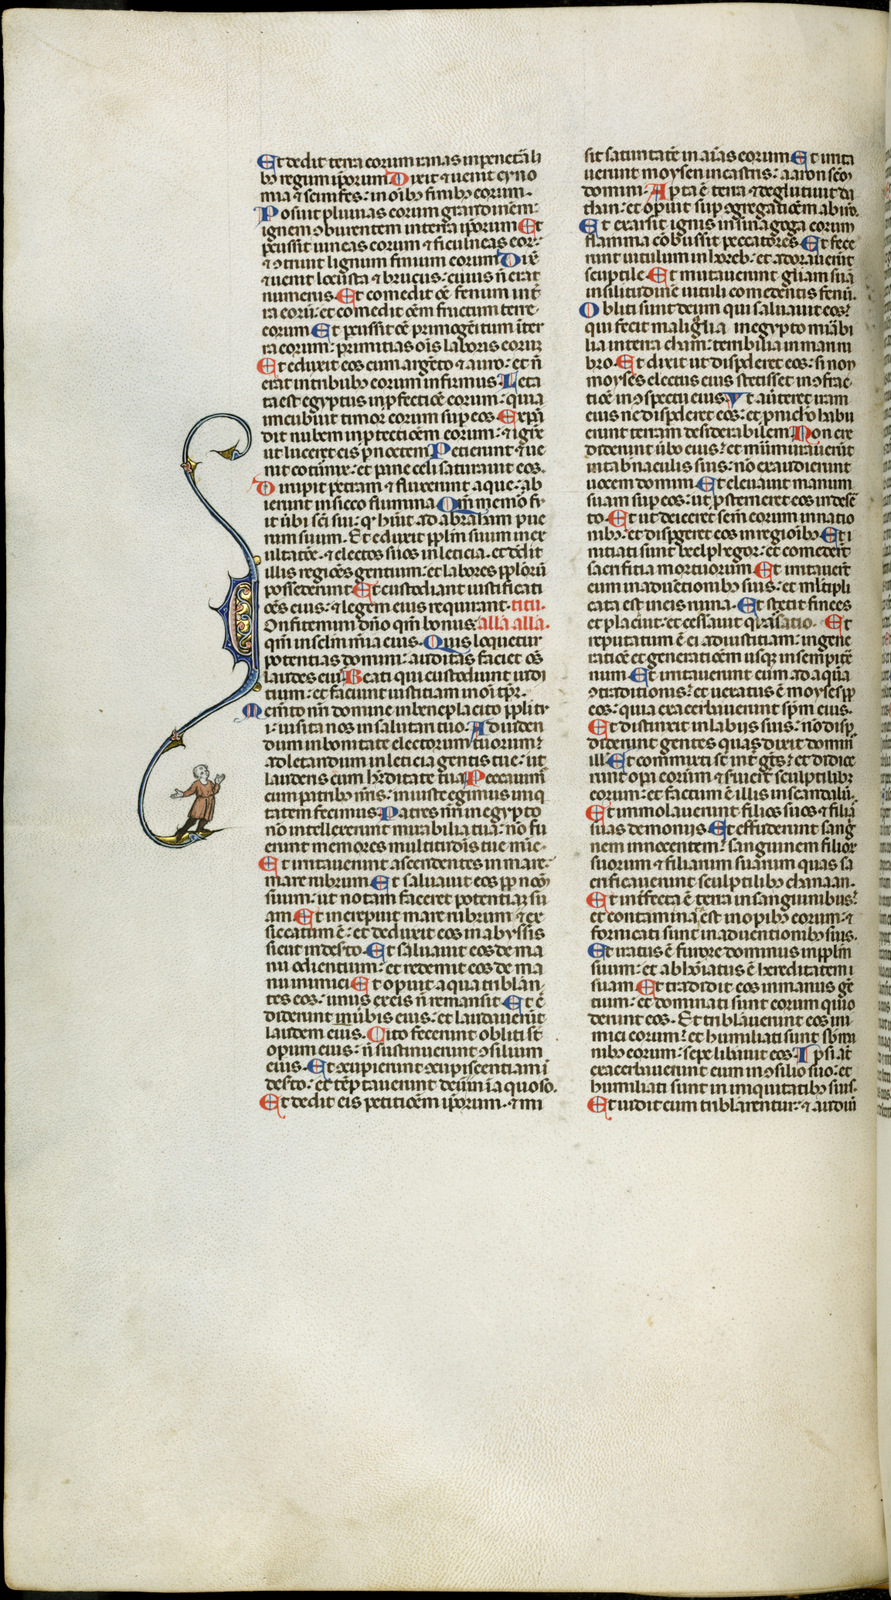 Et dedit terra eorum ranas in penetᷓlib
bꝫ regum ip̄orum. Dixit ⁊ uenit cyno
mia ⁊ scinifes: in oībꝫ finibꝫ eorum.
Posuit pluuias eorum grandinem:
ignem ↄburentem in terra ip̄orum. Et
ꝑcussit uineas eorum ⁊ ficulneas eoꝝ:
⁊ ↄtriuit lignum finium eorum. Dix̄
⁊ uenit locusta ⁊ brucus: cuius ñ erat
numerus. Et comedit oē fenum in t̄
ra eoꝝ: et comedit oēm fructum terre
eorum. Et ꝑcussit oē primogēitum ī ter
ra eorum: primitias oīs laboris eorum.
Et eduxit eos cum argēto ⁊ auro: et ñ
erat in tribubꝫ eorum infirmus. Leta
ta est egyptus in ꝓfectiōe eorum: quia
incubuit timor eorum suꝑ eos. Expā
dit nubem in ꝓtectiōem eorum: ⁊ ignē
ut luceret eis ꝑ noctem. Petierunt ⁊ ue
nit coturnix: et pane celi saturauit eos.
Dirupit petram ⁊ fluxerunt aque: ab
ierunt in sicco flumina. Qm̄ memor fu
it ūbi sc̄i sui: qd̄ hūit ad abraham pue
rum suum. Et eduxit ppl̄m suum in ex
ultatōe: ⁊ electos suos in leticia. et dedit
illis regiōes gentium: et labores ppl̄oꝝ
possederunt. Et custodiant iustificati
ōes eius: ⁊ legem eius requirant. titu.
Confitemini dn̄o qm̄ bonus: alla alla.
qm̄ in sc̄lm m̄ia eius. Quis loquetur
potentias domini: auditas faciet oēs
laudes eius. Beati qui custodiunt iudi
tium: et faciunt iustitiam in oī tp̄r.
Memēto nr̄i domine in beneplacito ppl̄i tu
i: uisita nos in salutari tuo. Ad uiden
dum in bonitate electorum tuorum:
ad letandum in leticia gentis tue: ut
lauderis cum hr̄ditate tua. Peccauim̄
cum patribꝫ nr̄is: iniuste egimus iniq
tatem fecimus. Patres nr̄i in egypto
nō intellexerunt mirabilia tua: nō fu
erunt memores multitudīs m̄ie tue.
Et irritauerunt ascendentes in mare:
mare rubrum. Et saluauit eos ꝓpꝑ nom̄
suum: ut notam faceret potentiaꝫ su
am. Et increpuit mare rubrum ⁊ ex
siccatum ē: et deduxit eos in abyssis
sicut in des̄to. Et saluauit eos de ma
nu odientium: et redemit eos de ma
nu inimici. Et operuit aqua triblan
tes eos: unus ex eis ñ remansit. Et c̄
diderunt in ūbis eius: et laudauerūt
laudem eius. Cito fecerunt obliti st̄
operum eius: ñ sustinuerunt ↄsilium
eius. Et ↄcupierunt ↄcupiscentiam ī
des̄to: et tēptauerunt deum ī aquoso.
Et dedit eis petitiōem ip̄orum: ⁊ mi
sit saturitatē in aīas eorum. Et irrita
uerunt moysen in castris: aaron sc̄m
domini. Apta ē terra ⁊ deglutiuit da
than: et oꝑuit suꝑ ↄgregatiōem abirō.
Et exarsit ignis in sinagoga eorum
flamma cōbussit peccatores. Et fece
runt uitulum in horeb: et adorauerūt
sculptile. Et mutauerunt gl̄iam suā
in silitudinē uituli comedentis fenū.
Obliti sunt deum qui saluauit eos:
qui fecit magnalia in egypto mirabi
lia in terra cham: terribilia in mari ru
bro. Et dixit ut disꝑderet eos: si non
moyses electus eius stetisset in ↄfrac
tiōe in ↄspectu eius. Ut auerteret iram
eius ne disꝑderet eos: et ꝓ nichō habu
erunt terram desiderabilem. Non cre
diderunt ūbo eius: et murmurauerūt
in tabernaculis suis: nō exaudierunt
uocem domini. Et eleuauit manum
suam suꝑ eos: ut ꝓsterneret eos in des̄
to. Et ut deiceret sem̄ eorum in natio
nibꝫ: et disꝑgeret eos in regiōibꝫ. Et i
nitiati sunt beelphegor: et comeder̄t
sacrifitia mortuorum. Et irritauerūt
eum in aduentionibꝫ suis: et mltipli
cata est in eis ruina. Et stetit finees
et placuit: et cessauit quassatio. Et
reputatum ē ei ad iustitiam: in gene
ratiōe et generatiōem usqꝫ in sempit̄
num. Et irritauerunt eum ad aquā
ↄtraditionis: et uexatus ē moyses ꝓp
eos: quia exacerbauerunt sp̄m eius.
Et distinxit in labiis suis: nō disꝑ
diderunt gentes quas dixit domin̄
ill̄. Et commixti st̄ int̄ gēs: et didice
runt oꝑa eorum ⁊ seruier̄t sculptilibꝫ
eorum: et factum ē illis in scandalū.
Et immolauerunt filios suos ⁊ filia
suas demoniis. Et effuderunt sang
nem innocentem: sanguinem filioꝝ
suorum ⁊ filiarum suarum quas sa
crificauerunt sculptilibꝫ chanaan.
Et infecta ē terra in sanguinibus:
et contaminata est in operibꝫ eorum: ⁊
fornicati sunt in aduentionibꝫ suis.
Et iratus ē furore dominus in ppl̄m
suum: et abhoīatus ē hereditatem
suam. Et tradidit eos in manus gē
tium: et dominati sunt eorum qui o
derunt eos. Et triblauerunt eos ini
mici eorum: et humiliati sunt sb̄ ma
nibꝫ eorum: sepe liberauit eos. Ipsi at̄
exacerbauerunt eum in ↄsilio suo: et
humiliati sunt in iniquitatibꝫ suis.
Et uidit cum triblarentur: ⁊ audiū